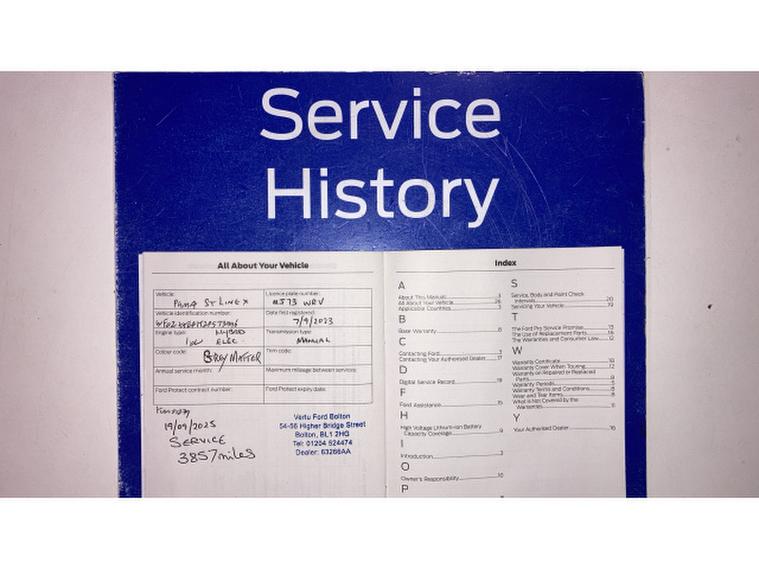 Service
History
All About Your Vehicle
Vehicle:
PUMA ST LINE X
Licence plate number:
Vehicle identification number:
Date first registered:
7/9/2023
Engine type:
HYBRID
ELEC.
Transmission type:
MANUAL
Colour code:
GREY MATTER
Trim code:
Annual service month:
Maximum mileage between services:
Ford Protect contract number:
Ford Protect expiry date:
19/09/2025
SERVICE
3857 miles
Vertu Ford Bolton
54-56 Higher Bridge Street
Bolton, BL1 2HG
Tel: 01204 524474
Dealer: 63266AA
Index
A
About This Manual 3
All About Your Vehicle
Applicable Countries 3
B
Base Warranty 8
C
Contacting Ford 3
Contacting Your Authorised Dealer 17
D
Digital Service Record 19
F
Ford Assistance 15
H
High Voltage Lithium-Ion Battery
Capacity Coverage 9
I
Introduction 3
O
Owner's Responsibility 10
P
S
Service, Body and Paint Check
Intervals 20
Servicing Your Vehicle 19
T
The Ford Pro Service Promise 13
The Use of Replacement Parts
The Warranties and Consumer Law 12
W
Warranty Certificate 10
Warranty Cover When Touring 12
Warranty on Repaired or Replaced
Parts
Warranty Periods
Warranty Terms and Conditions 8
Wear and Tear Items 8
What is Not Covered by the
Warranties 11
Y
Your Authorised Dealer 16